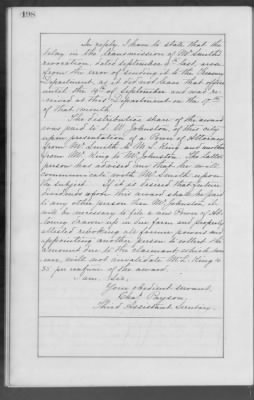 498
In reply I have to state that the
delay in the transmission of Mr. Smith's
revocation, dated September 5th last, arose
from the error of sending it to the Treasury
Department, as it did not leave that office
until the 14th of September and was re-
ceived at this Department on the 17th
of that month.
The distributive share of the award
was paid to S. W. Johnston, of this city
upon presentation of a Power of Attorney
from Mr. Smith to W. L. King and another
from Mr. King to Mr. Johnston. The latter
person has advised me that he will
communicate with Mr. Smith upon
the subject. If it is desired that future
dividends upon this award shall be paid
to any other person than Mr. Johnston, it
will be necessary to file a new Power of At-
torney drawn up in due form and properly
attested revoking all former powers and
appointing another person to collect the
amounts due to the claimant which how-
ever, will not invalidate W. L. King's
35 per centum of the award.
I am, Sir,
Your obedient servant,
Chas. Payson,
Third Assistant Secretary.